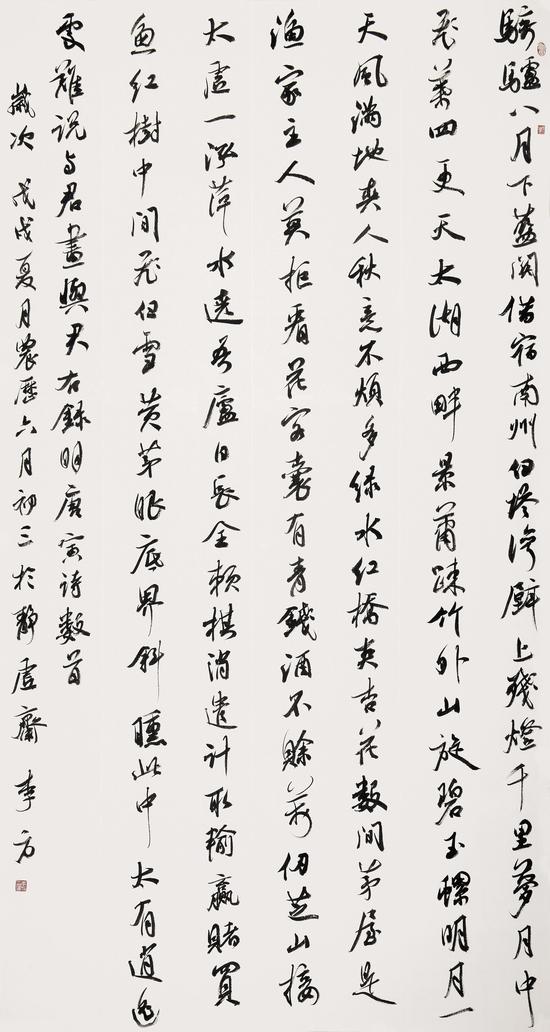 騎驢八月下藍関借宿南州白塔灣壁上殘燈千里夢月中
飛葉四更天太湖西畔景蕭疎竹外山旋碧玉螺明月一
天風滿地爽人秋意不煩多綠水紅橋夾杏花數間茅屋是
漁家主人莫拒看花客囊有青錢酒不賒萬仞芝山接
太虛一泓萍水遶吾廬日長全賴棋消遣計取輸贏賭買
魚紅樹中間飛白雪黃茅眼底界斜曛此中太有逍遙
處難說与君畫與君右錄明唐寅詩數首
歲次戊戌夏月農歷六月初三於靜虛齋 李方